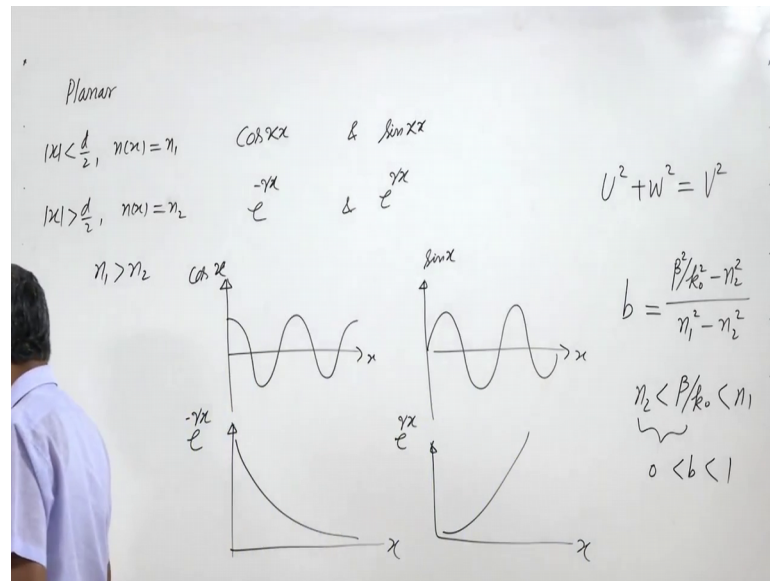 Planar
|x| < d/2, n(x) = n₁ cos κx & sin κx
|x| > d/2, n(x) = n₂ e^-γx & e^γx
n₁ > n₂
cos x
x
sin x
x
e^-γx
x
e^γx
x
U² + W² = V²
b = (β²/k₀² - n₂²)/(n₁² - n₂²)
n₂ < β/k₀ < n₁
0 < b < 1